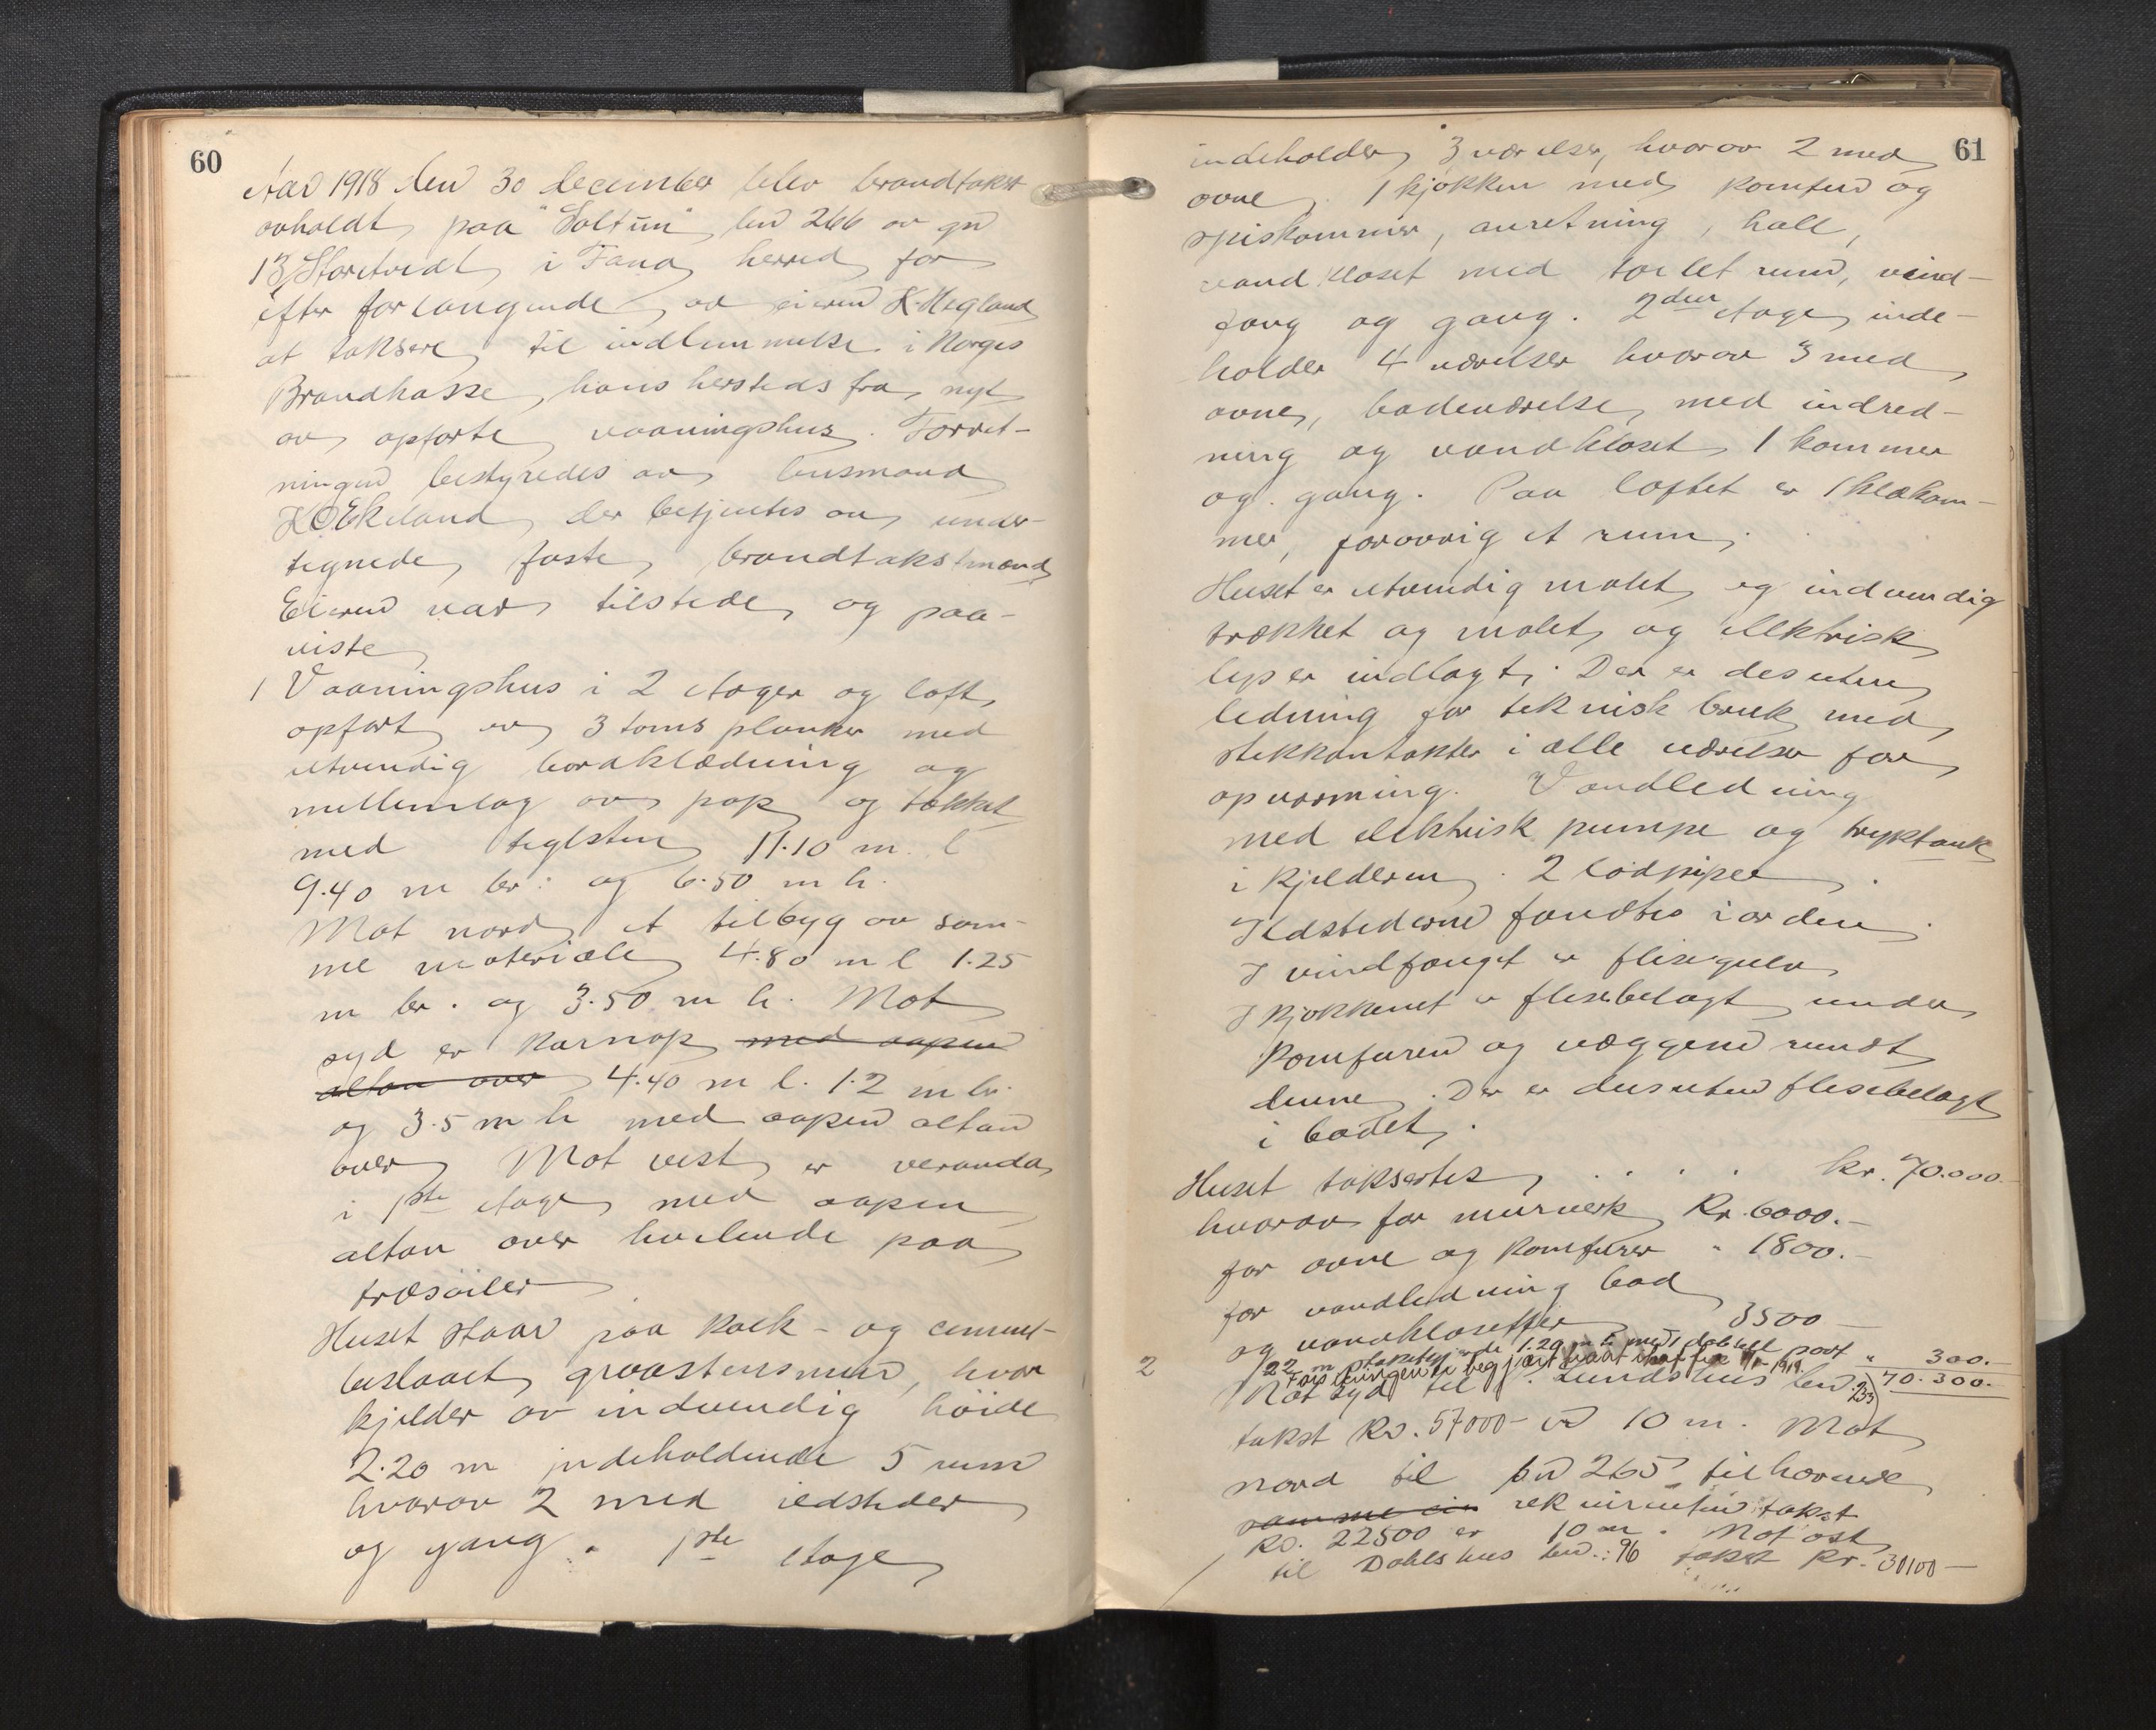 60
Aar 1918 den 30 december blev brandtakst
avholdt paa "Soltun" bn 266 av gn
13 Storetvedt i Fana herred for
efter forlangende av eieren K. Hegland
at taksere til indlemmelse i Norges
Brandkasse, hans hersteds fra nyt
av opførte vaaningshus. Forret-
ningen bestyredes av lensmand
K O Ekeland der betjentes av under-
tegnede faste brandtakstmænd
Eieren var tilstede og paa-
viste
1 Vaaningshus i 2 etager og loft,
opført av 3 toms planker med
utvendig bordklædning og
mellemlag av pap og tækket
med teglsten 11.10 m. l
9.40 m br: og 6.50 m h.
Mot nord et tilbyg av sam-
me materiale 4.80 m l 1.25
m br. og 3.50 m h. Mot
syd er karnap med aapen
altan over 4.40 m l. 1.2 m br.
og 3.5 m h med aapen altan
over Mot vest er veranda
i 1ste etage med aapen
altan over hvilende paa
træsøiler
Huset staar paa kalk- og cement-
beslaaet graastensmur, hvor
kjelder av indvendig høide
2.20 m indeholdende 5 rum
hvorav 2 med ildsteder
og gang. 1ste etage
61
indeholder 3 værelser, hvorav 2 med
ovne. 1 kjøkken med komfur og
spiskammer, anretning, hall,
vandkloset med toilet rum, vind-
fang og gang. 2den etage inde-
holder 4 værelser hvorav 3 med
ovne, badeværelse med indred-
ning og vandkloset 1 kammer
og gang. Paa loftet er 1 klækam-
mer, forøvrig et rum.
Huset er utvendig malet og indvendig
trækket og malet og elektrisk
lys er indlagt. Der er desuten
ledning for teknisk bruk med
stikkontakter i alle værelser for
opvarming. Vandledning
med elektrisk pumpe og tryktank
i kjelderen. 2 lodpiper.
Ildstederne fandtes i orden.
I vindfanget er flisegulv
I kjøkkenet er flisebelagt under
komfuren og væggene rundt
denne. Der er desuten flisebelagt
i badet.
Huset taksertes . . . . kr. 70.000.
hvorav for murverk Kr. 6000.-
for ovne og komfurer " 1800.-
for vandledning bad
og vandklosetter 3500 -
2 22 m stakitgjærde 1.20 m h med dobbelt port " 300.-
70.300.-
Mot syd til Lunds hus bn. 233
takst Kr. 57000- er 10 m. Mot
nord til bn 265 tilhørende
samme eier rekvirenten takst
Kr. 22500 er 10 m. Mot øst
til Dahls hus bn.: 96 takst Kr. 30100 -